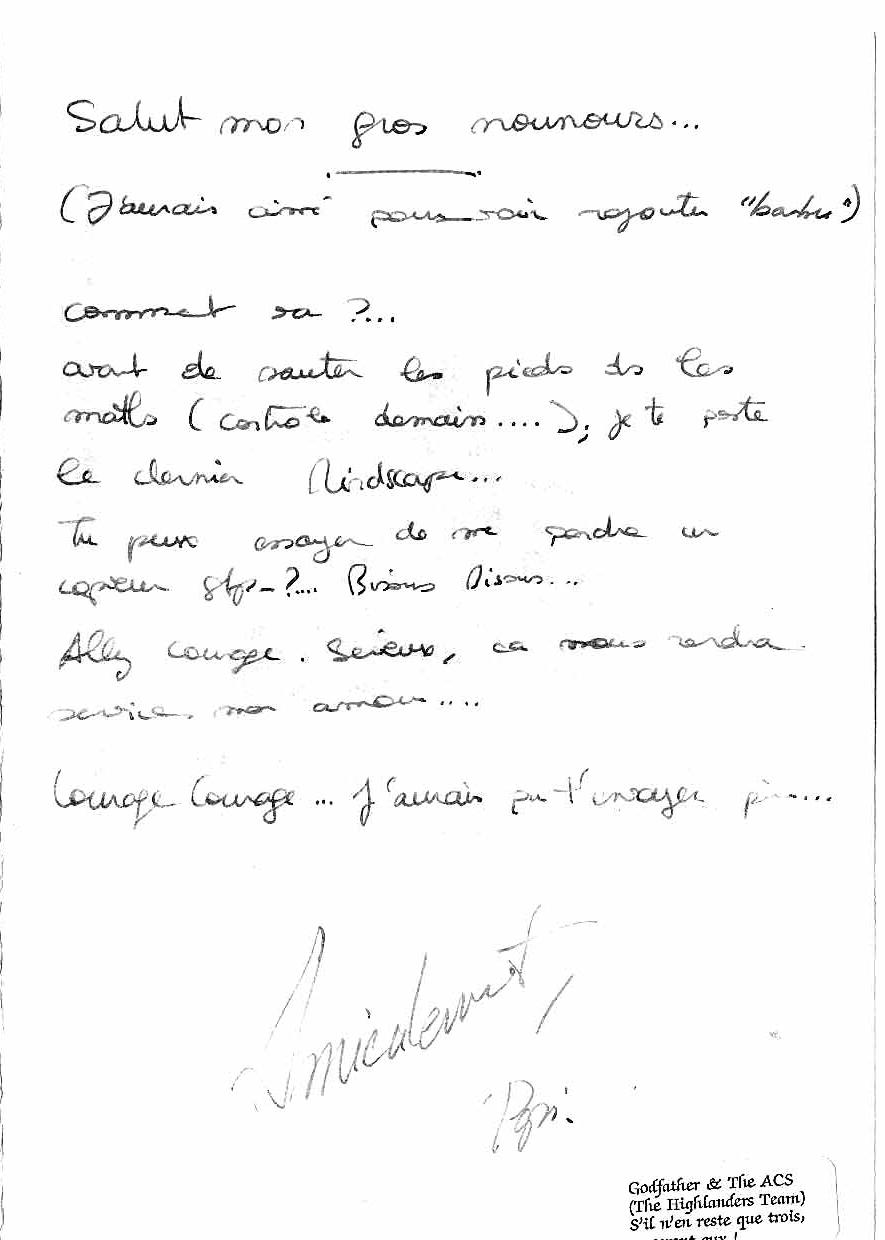 Salut mon gros nounours...
(J'aurais aimé pouvoir rajouter "barbu")
comment va ?...
avant de sauter les pieds ds les
maths (contrôle demain....); je te poste
le dernier Mindscape...
Tu peux essayer de me pondre un
copieur stp-?.... Bisous Bisous...
Allez courage. Sérieux, ca nous rendra
service. mon amour....
Courage Courage ... J'aurais pu t'envoyer
Amicalement,
Godfather & The ACS
(The Highlanders Team)
S'il n'en reste que trois,